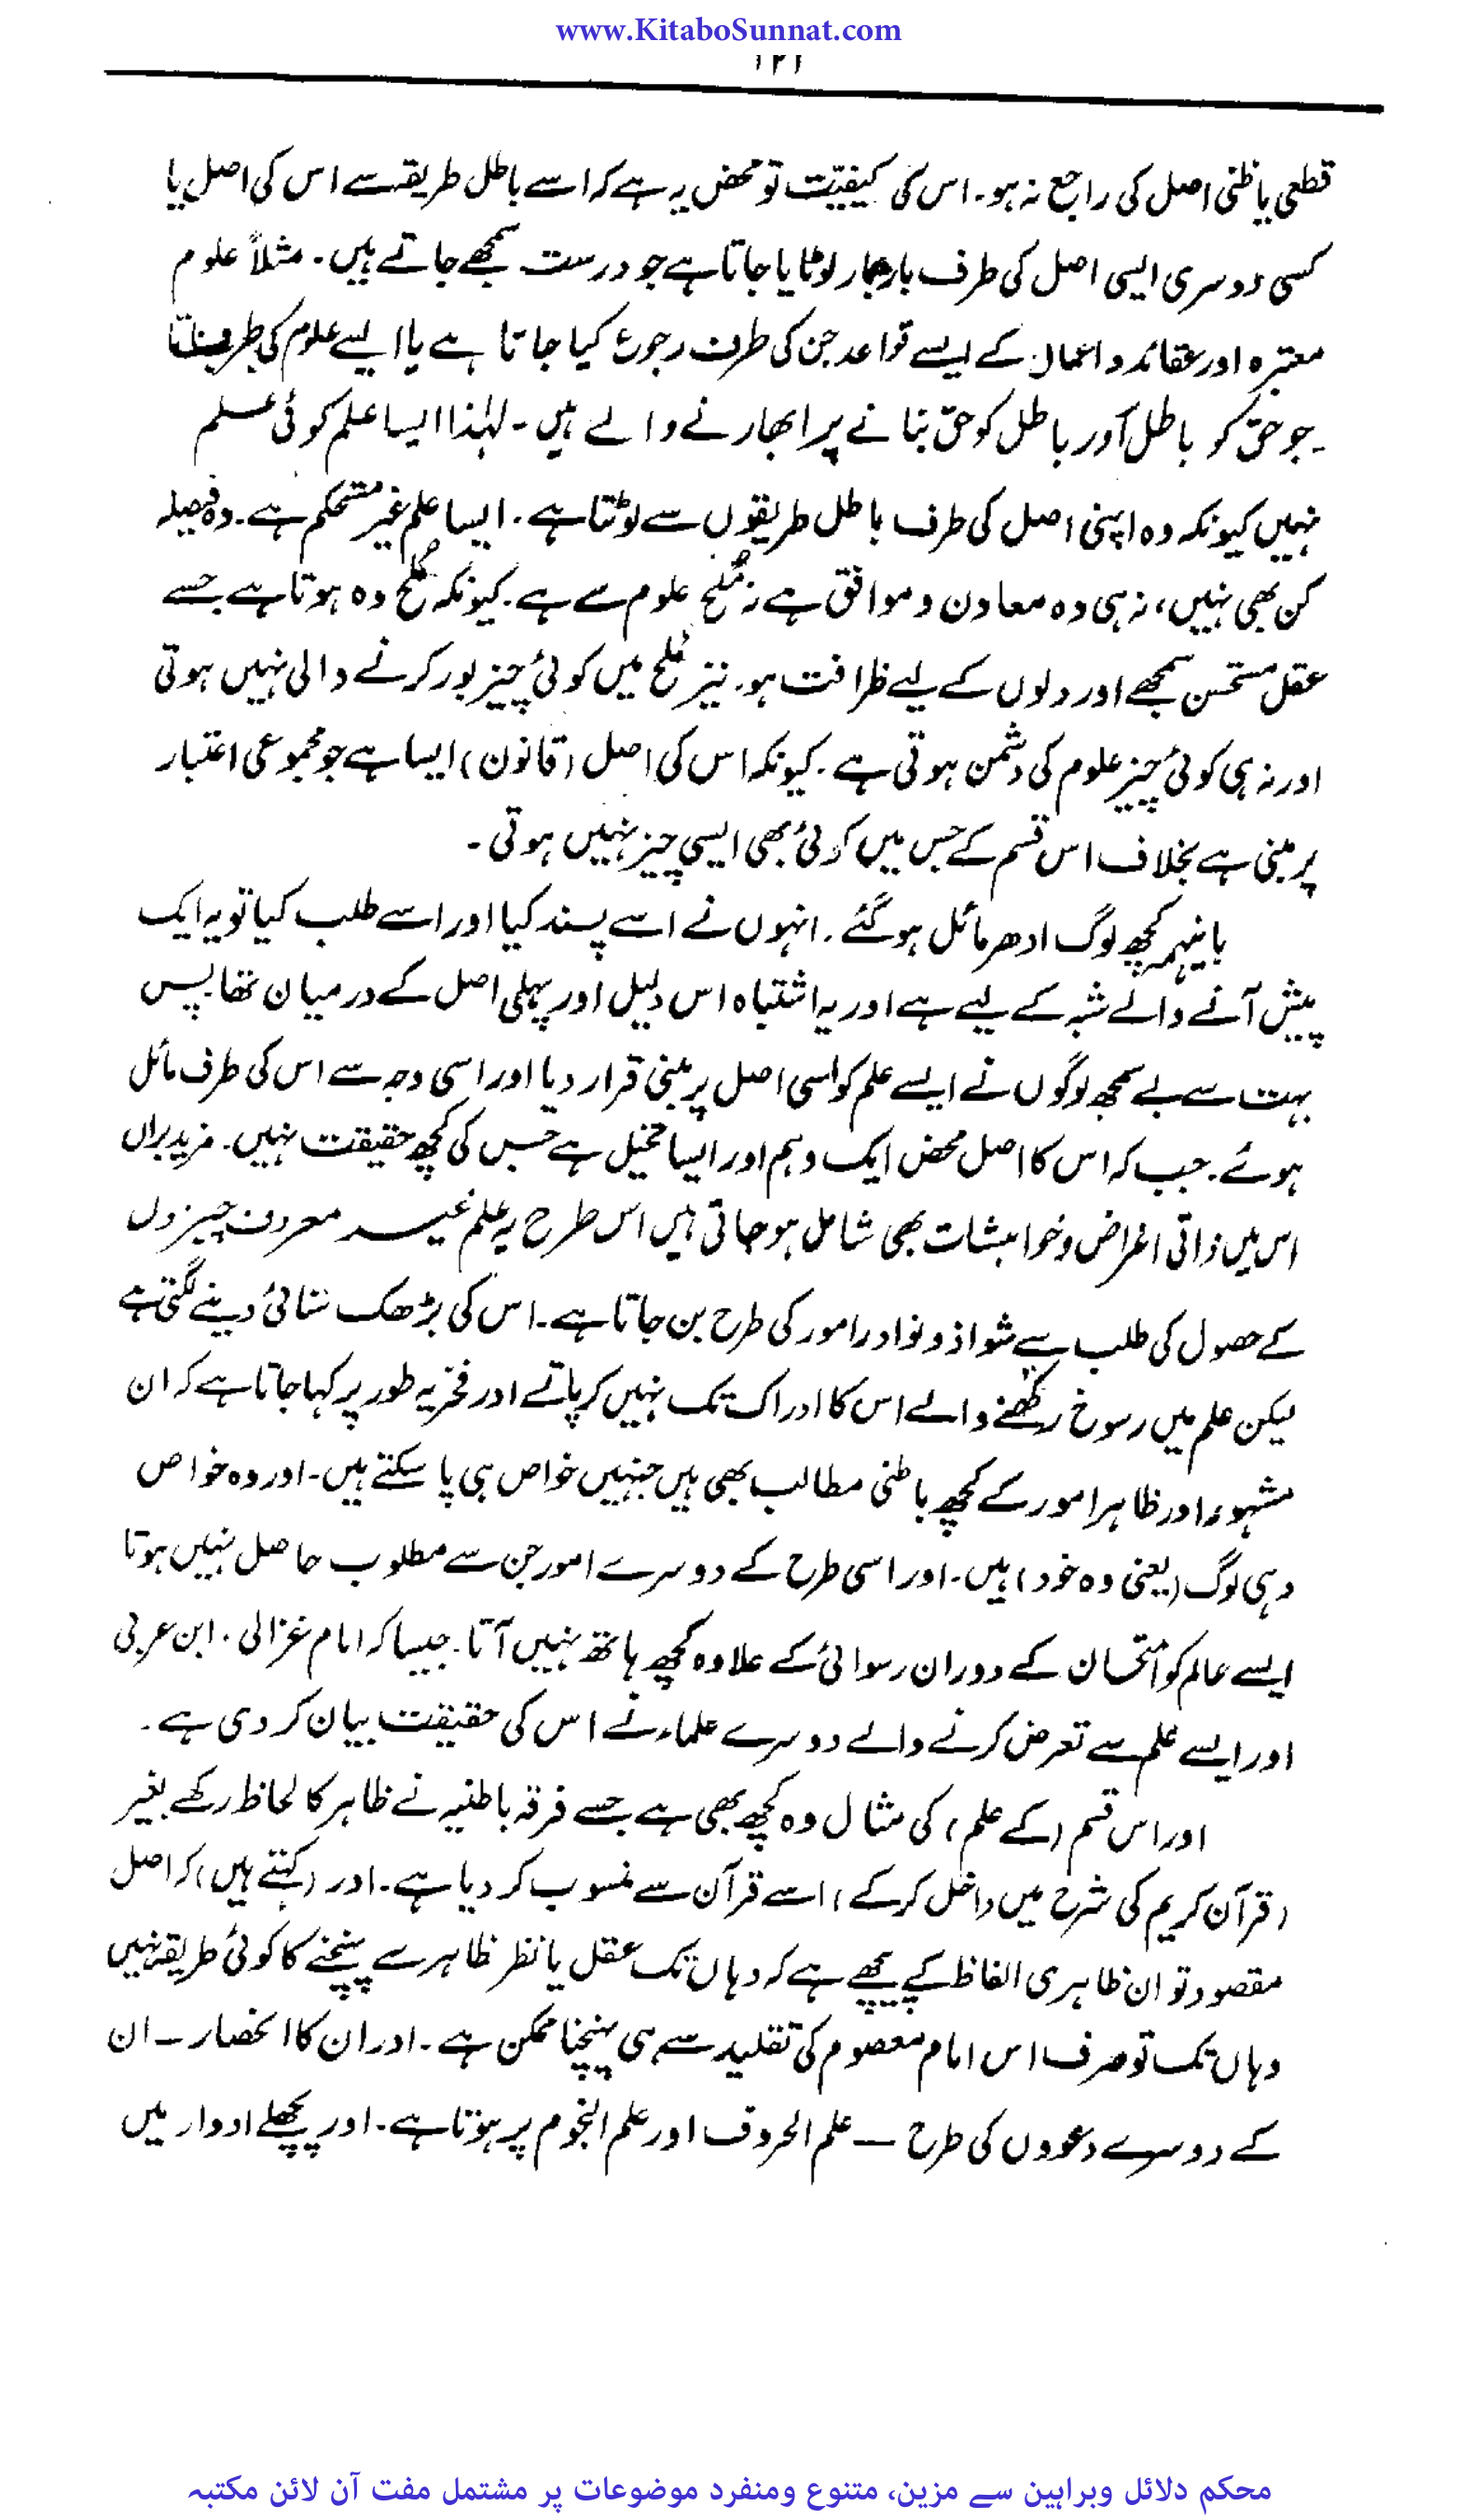 www.KitaboSunnat.com
۱۲۱
قطعی یا ظنی اصل کی راجع نہ ہو۔ اس کی کیفیّت تو محض یہ ہے کہ اسے باطل طریقہ سے اس کی اصل یا
کسی دوسری ایسی اصل کی طرف بار بار لوٹایا جاتا ہے جو درست سمجھے جاتے ہیں۔ مثلاً علوم
معتبرہ اور عقائد و اعمال کے ایسے قواعد جن کی طرف رجوع کیا جاتا ہے یا ایسے علوم کی طرف لوٹتا
جو حق کو باطل اور باطل کو حق بنانے پر ابھارنے والے ہیں۔ لہٰذا ایسا علم کوئی علم
نہیں کیونکہ وہ اپنی اصل کی طرف باطل طریقوں سے لوٹتا ہے۔ ایسا علم غیر مستحکم ہے۔ وہ فیصلہ
کن بھی نہیں، نہ ہی وہ معاون و موافق ہے نہ مُلح علوم سے ہے۔ کیونکہ مُلح وہ ہوتا ہے جسے
عقل مستحسن سمجھے اور دلوں کے لیے ظرافت ہو۔ نیز مُلح میں کوئی چیز بور کرنے والی نہیں ہوتی
اور نہ ہی کوئی چیز علوم کی دشمن ہوتی ہے۔ کیونکہ اس کی اصل (قانون) ایسا ہے جو مجموعی اعتبار
پر مبنی ہے بخلاف اس قسم کے جس میں کوئی بھی ایسی چیز نہیں ہوتی۔
بایںہمہ کچھ لوگ ادھر مائل ہو گئے۔ انہوں نے اسے پسند کیا اور اسے طلب کیا تو یہ ایک
پیش آنے والے شبہ کے لیے ہے اور یہ اشتباہ اس دلیل اور پہلی اصل کے درمیان تھا پس
بہت سے بے سمجھ لوگوں نے ایسے علم کو اسی اصل پر مبنی قرار دیا اور اسی وجہ سے اس کی طرف مائل
ہوئے۔ جب کہ اس کا اصل محض ایک وہم اور ایسا تخیل ہے جس کی کچھ حقیقت نہیں۔ مزید براں
اس میں ذاتی اغراض و خواہشات بھی شامل ہو جاتی ہیں اس طرح یہ علم غیر معروف چیزوں
کے حصول کی طلب سے شواذ و نوادر امور کی طرح بن جاتا ہے۔ اس کی بڑھک سنائی دینے لگتی ہے
لیکن علم میں رسوخ رکھنے والے اس کا ادراک تک نہیں کر پاتے اور فخریہ طور پر کہا جاتا ہے کہ ان
مشہور اور ظاہر امور کے کچھ باطنی مطالب بھی ہیں جنہیں خواص ہی پا سکتے ہیں۔ اور وہ خواص
وہی لوگ (یعنی وہ خود) ہیں۔ اور اسی طرح کے دوسرے امور جن سے مطلوب حاصل نہیں ہوتا
ایسے عالم کو امتحان کے دوران رسوائی کے علاوہ کچھ ہاتھ نہیں آتا۔ جیسا کہ امام غزالی، ابن عربی
اور ایسے علم سے تعرض کرنے والے دوسرے علماء نے اس کی حقیقت بیان کر دی ہے۔
اور اس قسم (کے علم) کی مثال وہ کچھ بھی ہے جسے فرقہ باطنیہ نے ظاہر کا لحاظ رکھے بغیر
(قرآن کریم کی شرح میں داخل کرکے) اسے قرآن سے منسوب کر دیا ہے۔ اور (کہتے ہیں) کہ اصل
مقصود تو ان ظاہری الفاظ کے پیچھے ہے کہ وہاں تک عقل یا نظر ظاہر سے پہنچنے کا کوئی طریقہ نہیں
وہاں تک تو صرف اس امام معصوم کی تقلید سے ہی پہنچنا ممکن ہے۔ اور ان کا انحصار — ان
کے دوسرے دعووں کی طرح — علم الحروف اور علم النجوم پر ہوتا ہے۔ اور پچھلے ادوار میں
محکم دلائل وبراہین سے مزین، متنوع ومنفرد موضوعات پر مشتمل مفت آن لائن مکتبہ